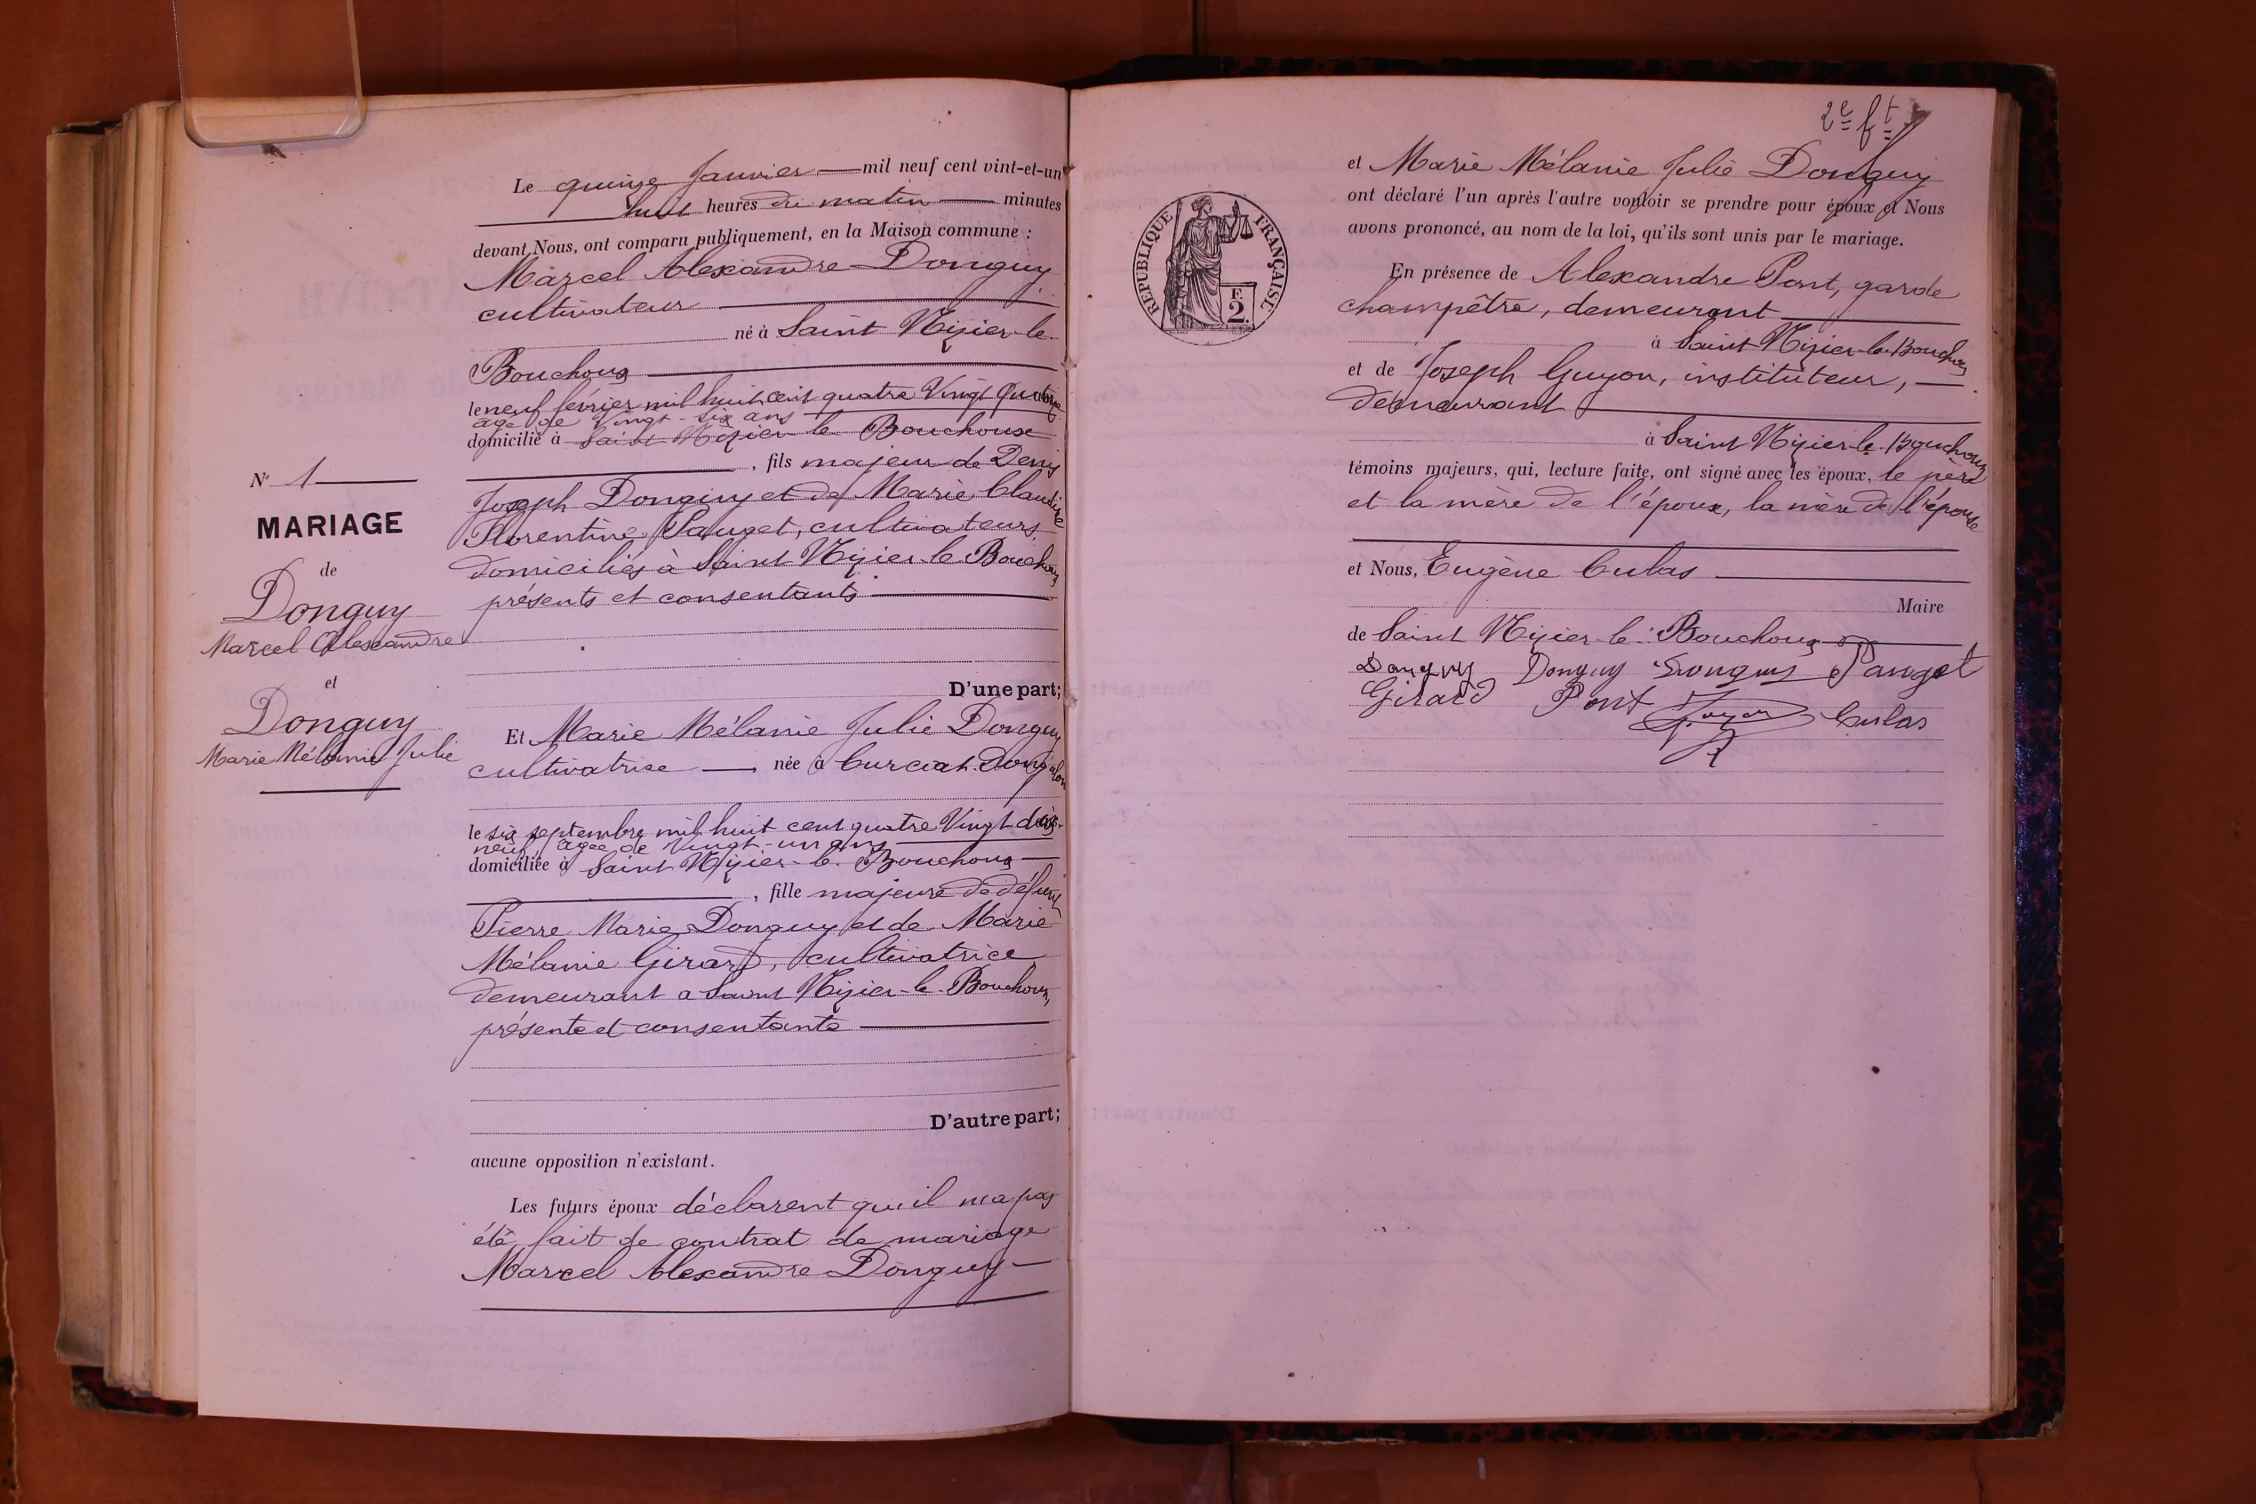 N° 1
MARIAGE
de
Donguy
Marcel Alexandre
et
Donguy
Marie Mélanie Julie
Le quinze Janvier mil neuf cent vint-et-un
huit heures du matin minutes
devant Nous, ont comparu publiquement, en la Maison commune :
Marcel Alexandre Donguy
cultivateur
né à Saint Nizier-le-
Bouchoux
le neuf février mil huit cent quatre Vingt quatorze
âgé de Vingt-six ans
domicilié à Saint Nizier-le Bouchoux
, fils majeur de Denis
Joseph Donguy et de Marie Claudine
Florentine Pauget, cultivateurs
domiciliés à Saint Nizier-le-Bouchoux
présents et consentants
D'une part;
Et Marie Mélanie Julie Donguy
cultivatrise née à Curciat-Dongalon
le six septembre mil huit cent quatre Vingt dix-
neuf, âgée de Vingt-un ans
domiciliée à Saint Nizier-le-Bouchoux
, fille majeure de défunt
Pierre Marie Donguy et de Marie
Mélanie Girard, cultivatrice
demeurant a Saint Nizier-le-Bouchoux,
présente et consentante
D'autre part;
aucune opposition n'existant.
Les futurs époux déclarent qu'il n'a pas
été fait de contrat de mariage
Marcel Alexandre Donguy
2e ft
REPUBLIQUE FRANÇAISE
F.
2.
et Marie Mélanie Julie Donguy
ont déclaré l'un après l'autre vouloir se prendre pour époux et Nous
avons prononcé, au nom de la loi, qu'ils sont unis par le mariage.
En présence de Alexandre Pont, garde
champêtre, demeurant
à Saint Nizier-le-Bouchoux
et de Joseph Guyon, instituteur,
demeurant
à Saint Nizier-le-Bouchoux
témoins majeurs, qui, lecture faite, ont signé avec les époux, le père
et la mère de l'époux, la mère de l'épouse
et Nous, Eugène Culas
Maire
de Saint Nizier-le-Bouchoux
Donguy Donguy Donguy Pauget
Girard Pont Guyon Culas